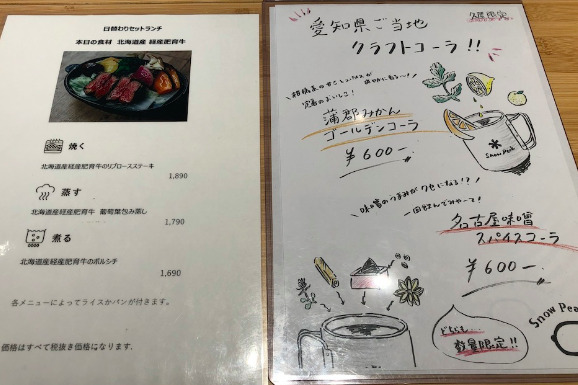 日替わりセットランチ
本日の食材 北海道産 経産肥育牛
焼く
北海道産経産肥育牛のリブロースステーキ
1,890
蒸す
北海道産経産肥育牛 葡萄葉包み蒸し
1,790
煮る
北海道産経産肥育牛のボルシチ
1,690
各メニューによってライスかパンが付きます。
価格はすべて税抜き価格になります。
愛知県ご当地
クラフトコーラ!!
蒲郡みかん
ゴールデンコーラ
¥600-
Snow Peak
味噌のうまみがクセになる!?
一回飲んでみやー!
名古屋味噌
スパイスコーラ
¥600-
どちらも
数量限定!!
Snow Pea